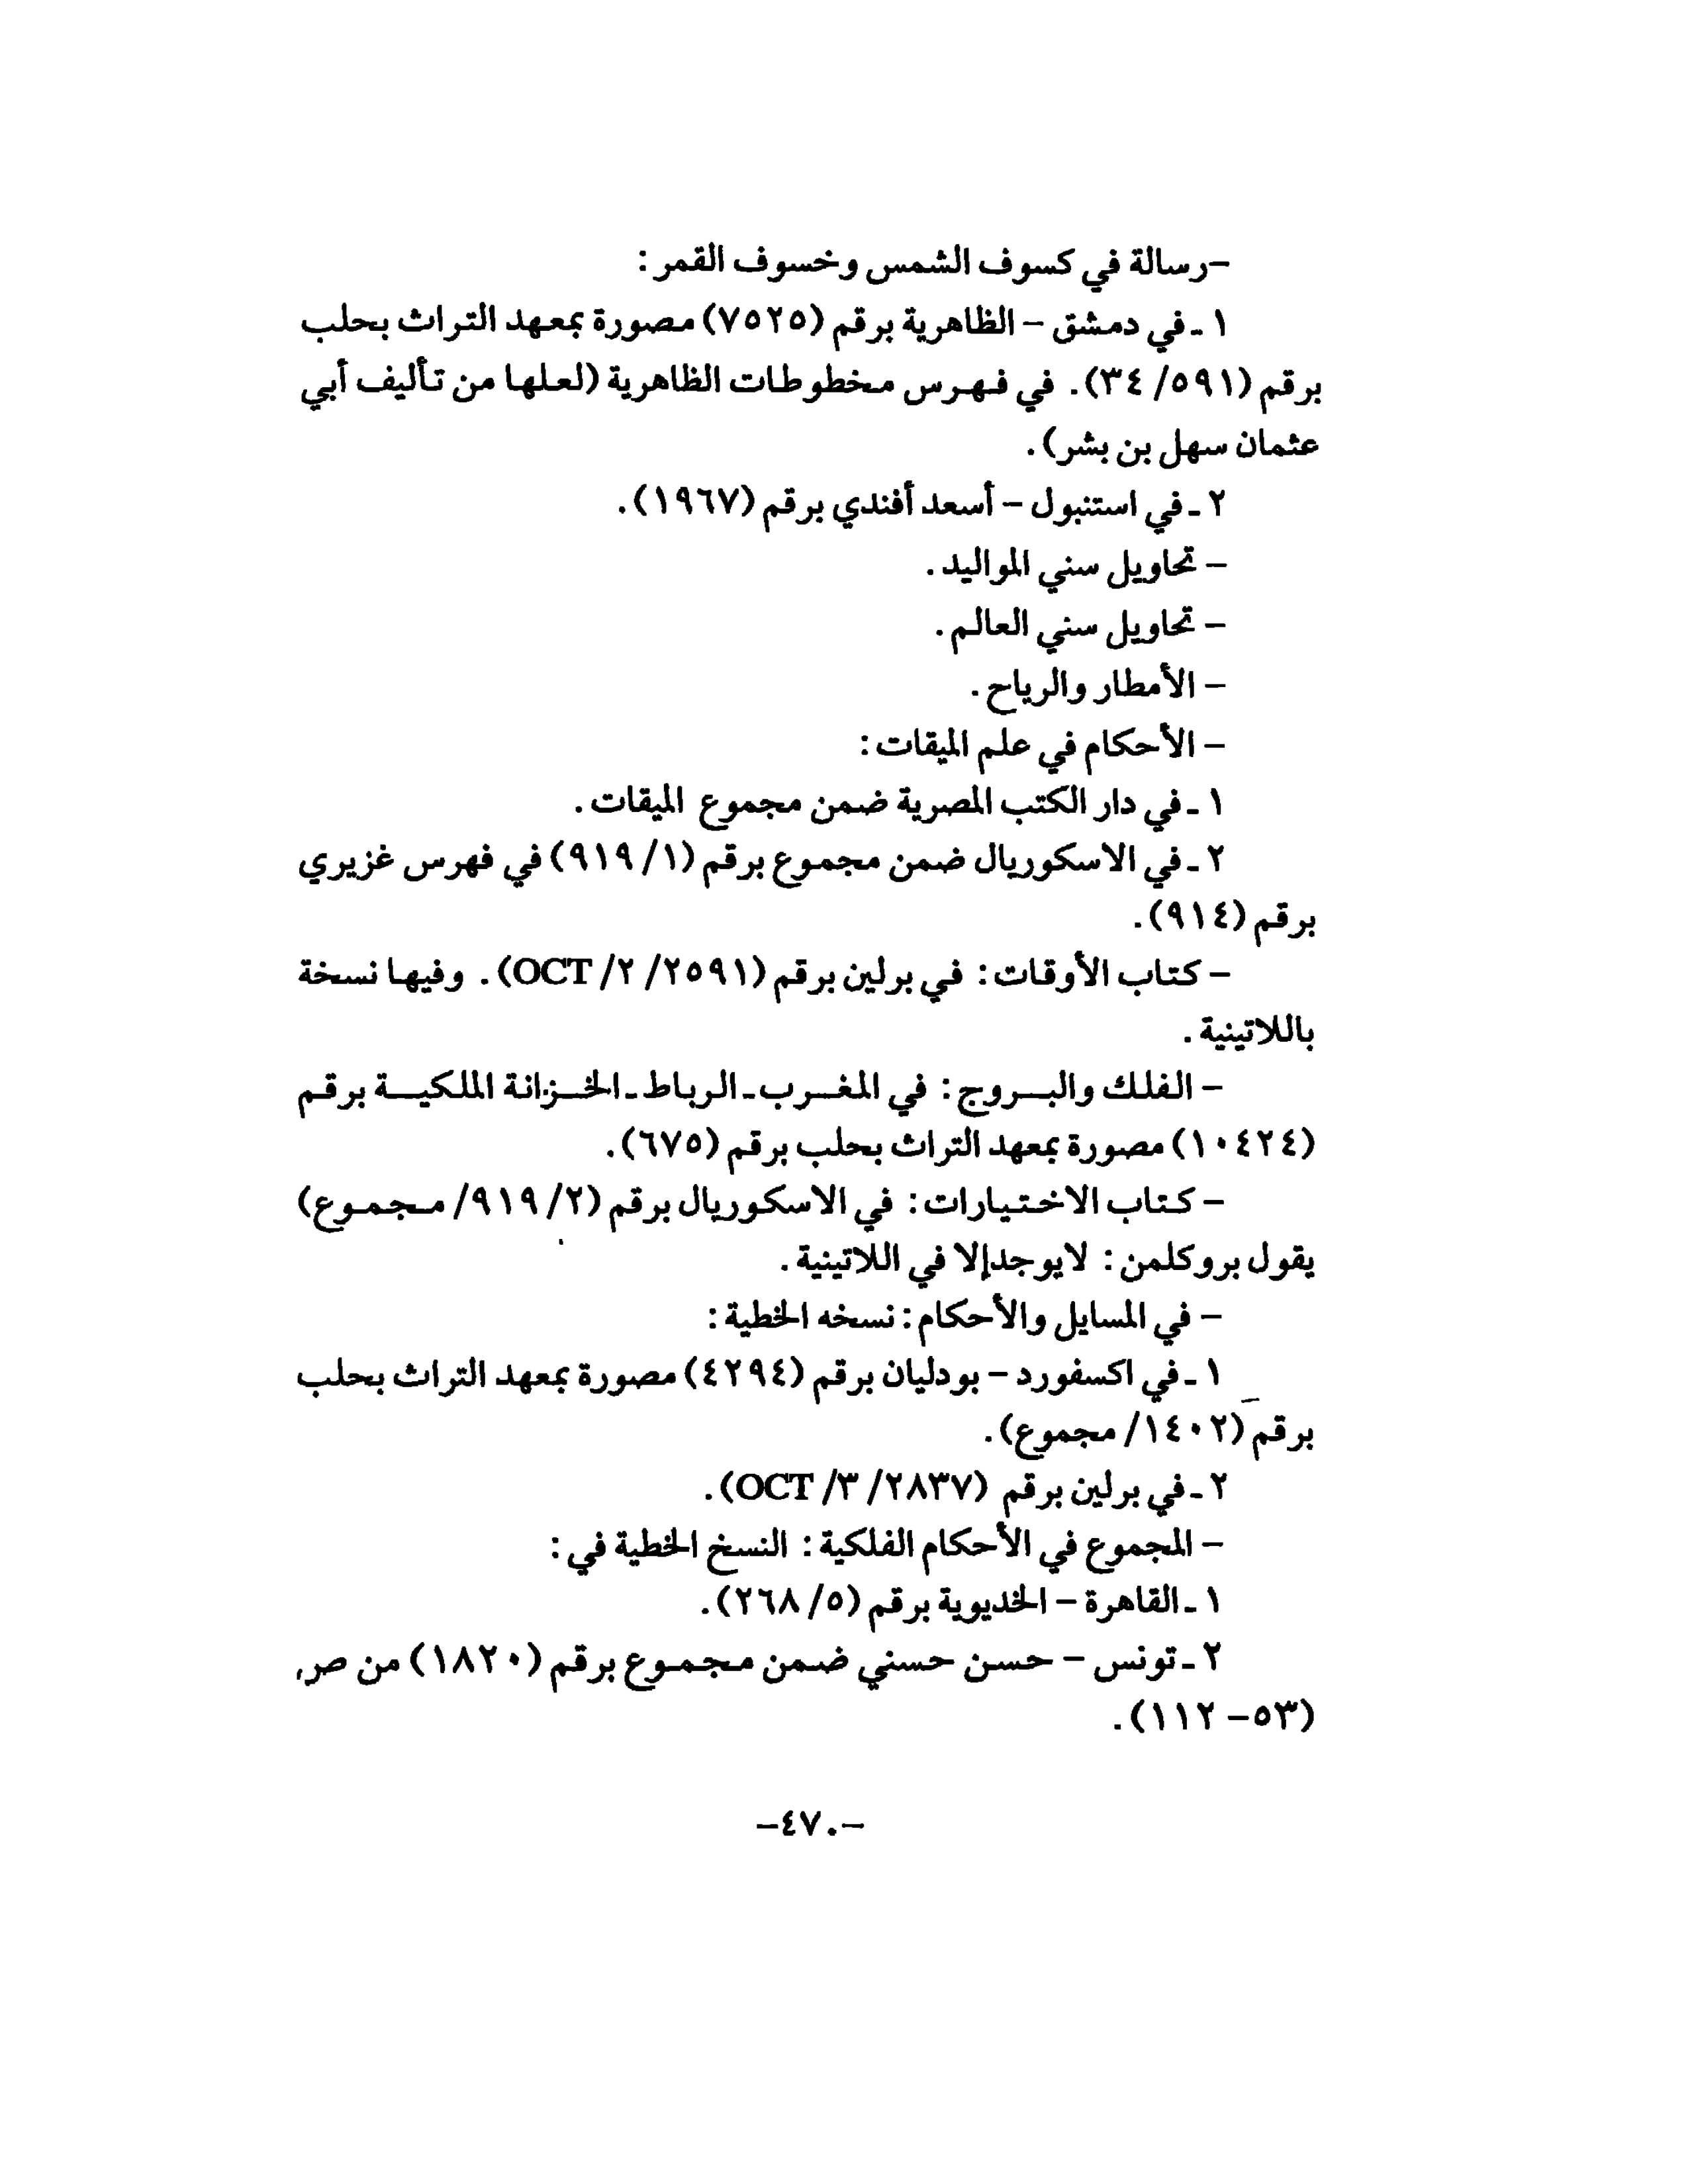 –رسالة في كسوف الشمس وخسوف القمر :
١ ـ في دمشق – الظاهرية برقم (٧٥٢٥) مصورة بمعهد التراث بحلب
برقم (٥٩١/ ٣٤). في فهرس مخطوطات الظاهرية (لعلها من تأليف أبي
عثمان سهل بن بشر).
٢ ـ في استنبول – أسعد أفندي برقم (١٩٦٧).
– تحاويل سني المواليد.
– تحاويل سني العالم.
– الأمطار والرياح.
– الأحكام في علم الميقات :
١ ـ في دار الكتب المصرية ضمن مجموع الميقات.
٢ ـ في الاسكوريال ضمن مجموع برقم (١/ ٩١٩) في فهرس غزيري
برقم (٩١٤).
– كتاب الأوقات : في برلين برقم (٢٥٩١/ ٢/ OCT). وفيها نسخة
باللاتينية.
– الفلك والبروج : في المغرب ـ الرباط ـ الخزانة الملكية برقم
(١٠٤٢٤) مصورة بمعهد التراث بحلب برقم (٦٧٥).
– كتاب الاختيارات : في الاسكوريال برقم (٢/ ٩١٩/ مجموع)
يقول بروكلمن : لايوجدإلا في اللاتينية.
– في المسايل والأحكام : نسخه الخطية :
١ ـ في اكسفورد – بودليان برقم (٤٢٩٤) مصورة بمعهد التراث بحلب
برقم (١٤٠٢/ مجموع).
٢ ـ في برلين برقم (٢٨٣٧/ ٣/ OCT).
– المجموع في الأحكام الفلكية : النسخ الخطية في :
١ ـ القاهرة – الخديوية برقم (٥/ ٢٦٨).
٢ ـ تونس – حسن حسني ضمن مجموع برقم (١٨٢٠) من ص
(٥٣– ١١٢).
–٤٧٠–